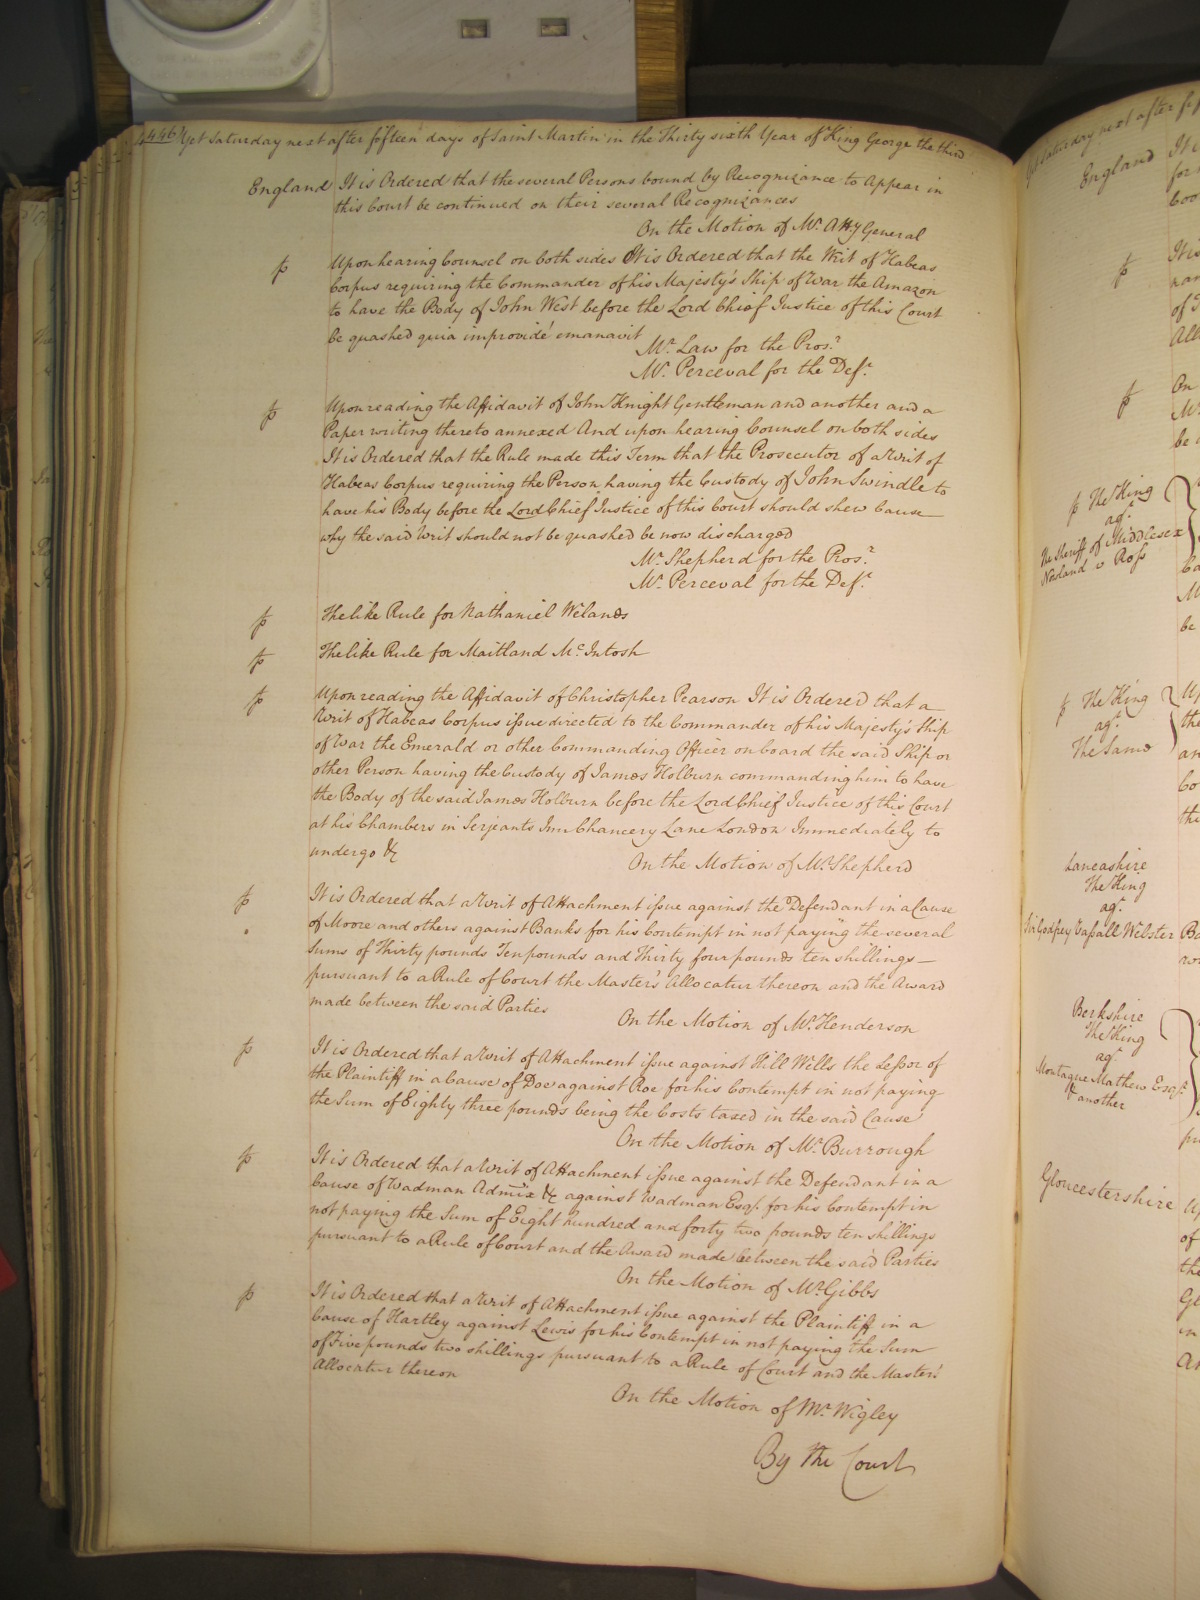 446 Yet Saturday next after fifteen days of Saint Martin in the Thirty sixth Year of King George the third
England It is Ordered that the several Persons bound by Recognizance to Appear in
this Court be continued on their several Recognizances
On the Motion of Mr. Atty General
Upon hearing Counsel on both sides It is Ordered that the Writ of Habeas
Corpus requiring the Commander of his Majesty's Ship of War the Amazon
to have the Body of John West before the Lord Chief Justice of this Court
be quashed quia improvidè emanavit
Mr. Law for the Prosr.
Mr. Perceval for the Deft.
Upon reading the Affidavit of John Knight Gentleman and another and a
Paper writing thereto annexed And upon hearing Counsel on both sides
It is Ordered that the Rule made this Term that the Prosecutor of a Writ of
Habeas Corpus requiring the Person having the Custody of John Swindle to
have his Body before the Lord Chief Justice of this Court should shew Cause
why the said Writ should not be quashed be now discharged
Mr. Shepherd for the Prosr.
Mr. Perceval for the Deft.
The like Rule for Nathaniel Welands
The like Rule for Maitland McIntosh
Upon reading the Affidavit of Christopher Pearson It is Ordered that a
Writ of Habeas Corpus issue directed to the Commander of his Majesty's Ship
of War the Emerald or other Commanding Officer on board the said Ship or
other Person having the Custody of James Holburn commanding him to have
the Body of the said James Holburn before the Lord Chief Justice of this Court
at his Chambers in Serjeants Inn Chancery Lane London Immediately to
undergo &c
On the Motion of Mr. Shepherd
It is Ordered that a Writ of Attachment issue against the Defendant in a Cause
of Moore and others against Banks for his Contempt in not paying the several
Sums of Thirty pounds Ten pounds and Thirty four pounds ten shillings
pursuant to a Rule of Court the Master's Allocatur thereon and the Award
made between the said Parties
On the Motion of Mr. Henderson
It is Ordered that a Writ of Attachment issue against Hill Wells the Lessor of
the Plaintiff in a Cause of Doe against Roe for his Contempt in not paying
the Sum of Eighty three pounds being the Costs taxed in the said Cause
On the Motion of Mr. Burrough
It is Ordered that a Writ of Attachment issue against the Defendant in a
Cause of Wadman Admix &c against Wadman Esqr. for his Contempt in
not paying the Sum of Eight hundred and forty two pounds ten shillings
pursuant to a Rule of Court and the Award made between the said Parties
On the Motion of Mr. Gibbs
It is Ordered that a Writ of Attachment issue against the Plaintiff in a
Cause of Hartley against Lewis for his Contempt in not paying the Sum
of Five pounds two shillings pursuant to a Rule of Court and the Master's
Allocatur thereon
On the Motion of Mr. Wigley
By the Court
Saturday next after
England
The King
agt.
The Sheriff of Middlesex
v Ross
The King
agt.
The Same
Lancashire
The King
agt.
Sir Godfrey Vassall Webster
Berkshire
The King
agt.
Montague Mathew Esqr.
& another
Gloucestershire